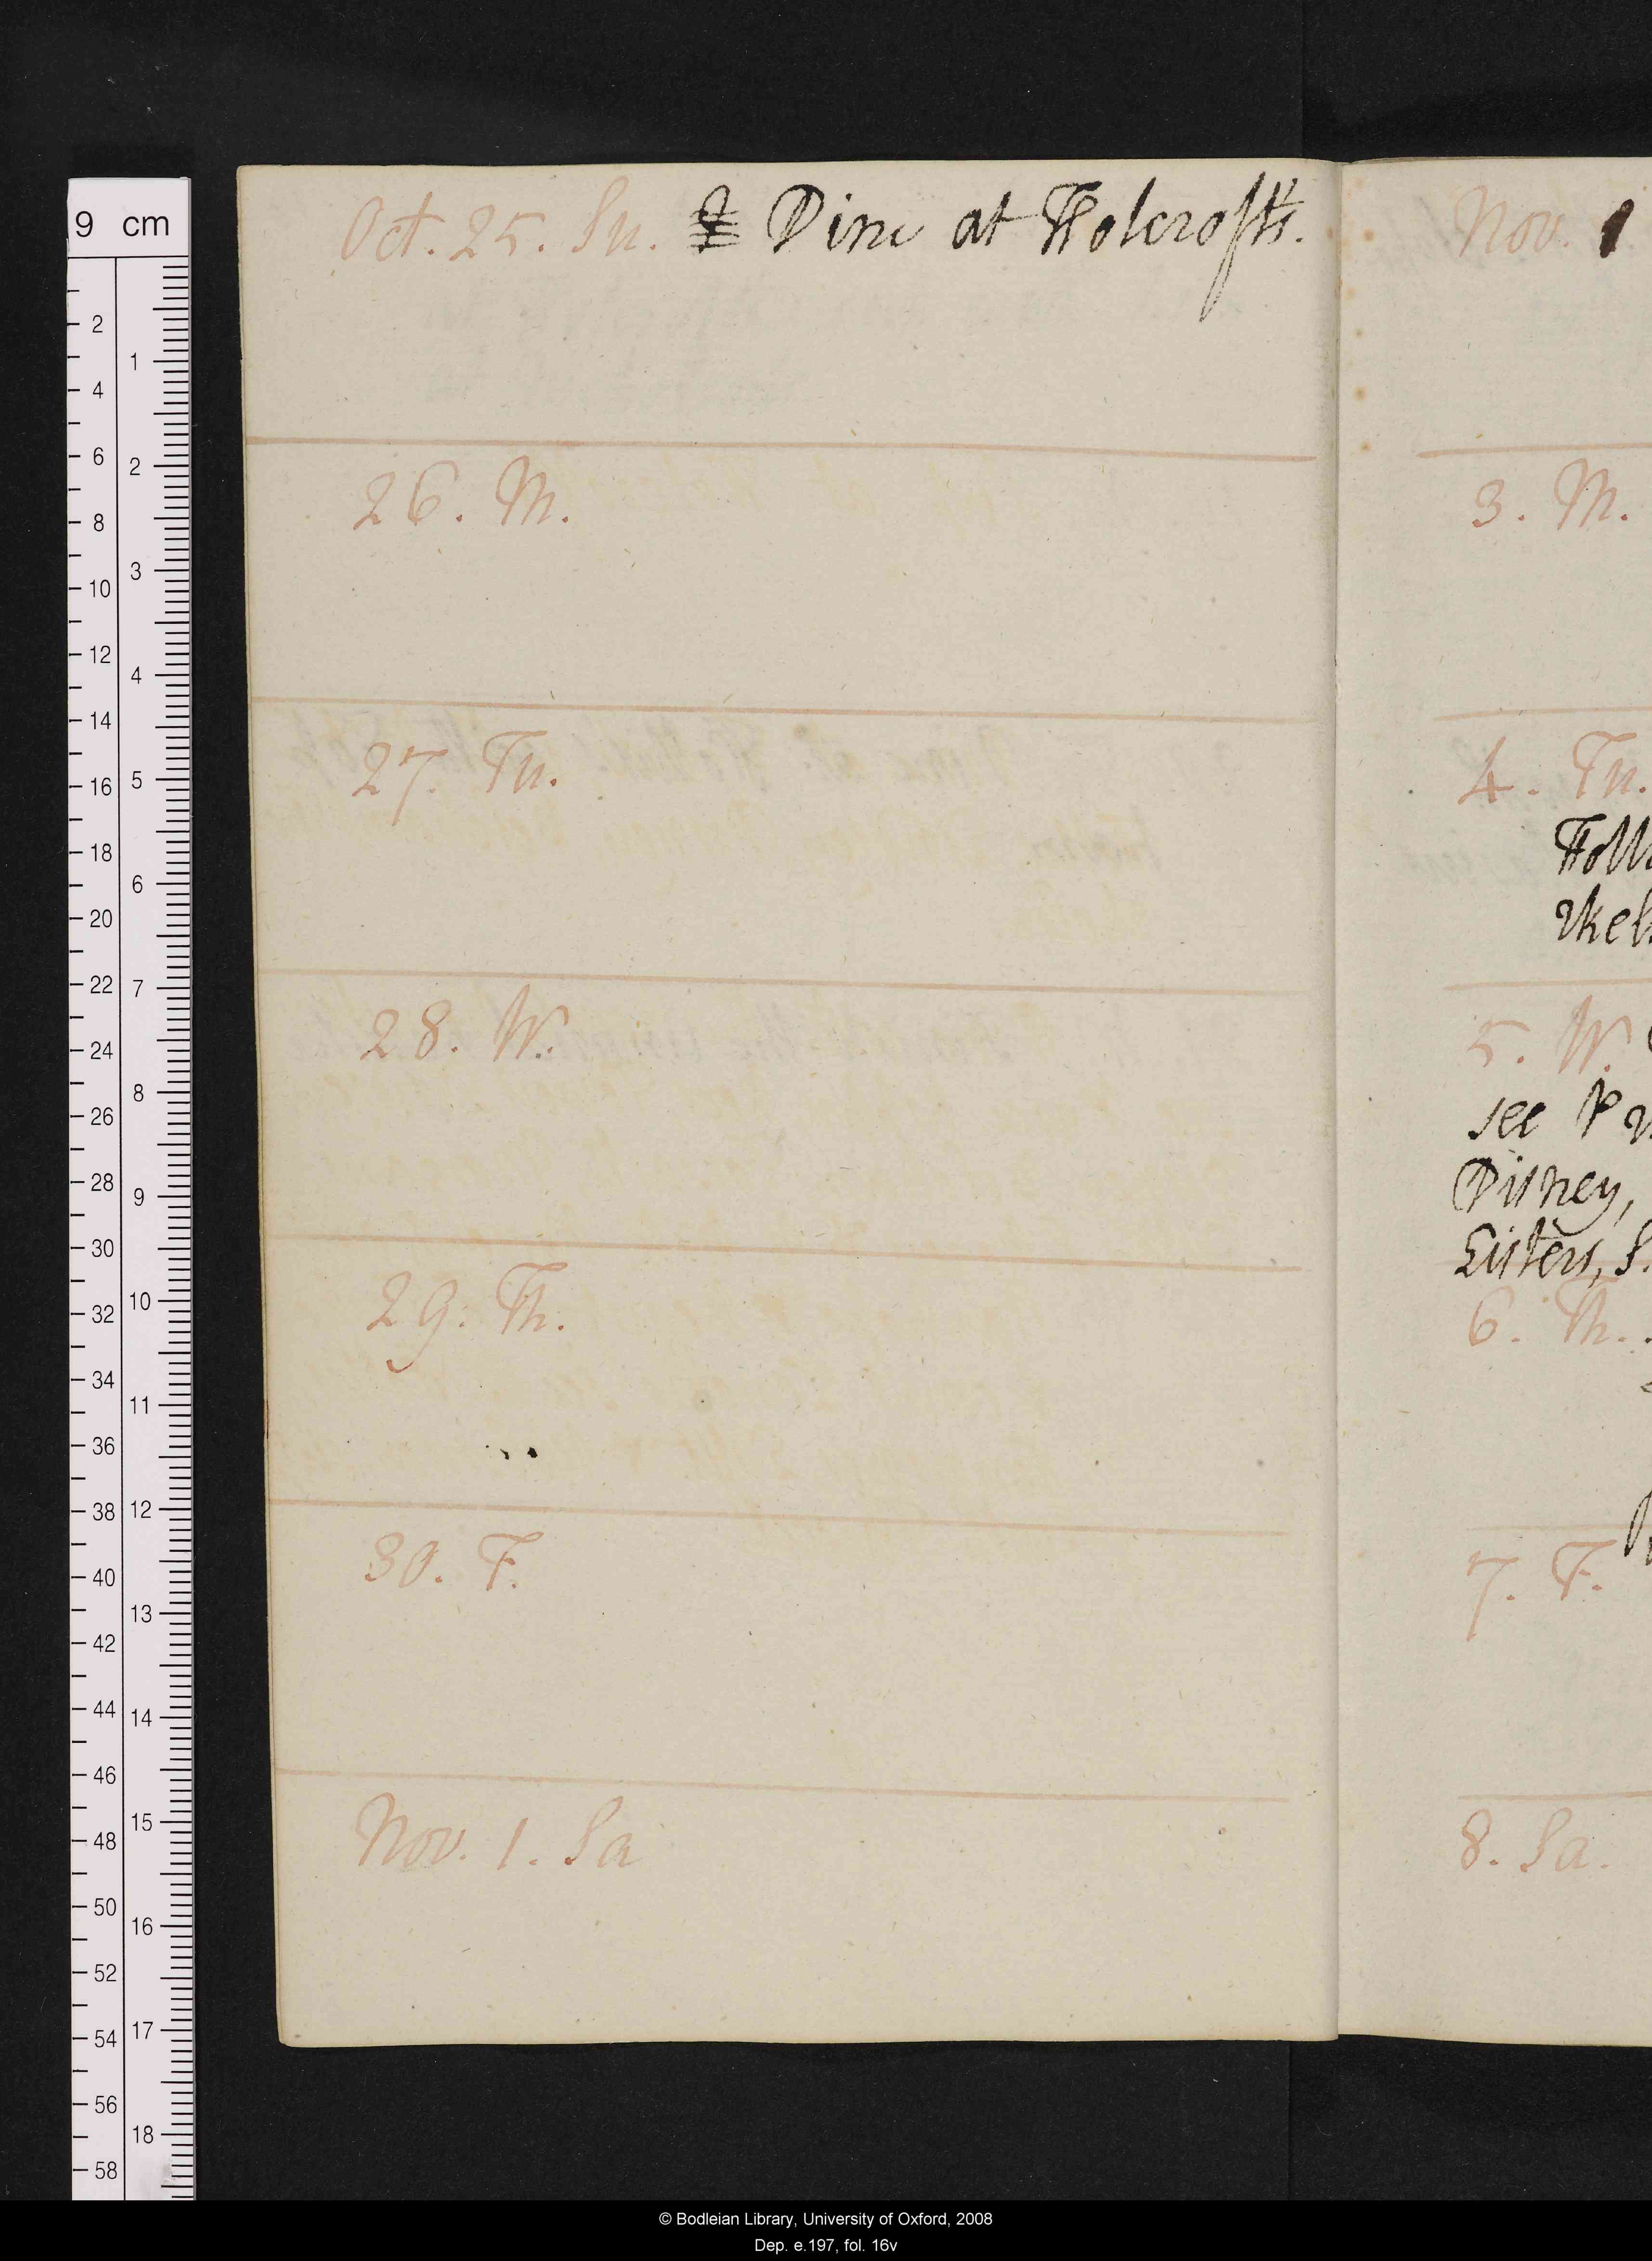 Oct. 25. Su. Dine at Holcroft's.
26. M.
27. Tu.
28. W.
29. Th.
30. F.
Nov. 1. Sa
Nov.
3. M.
4. Tu.
Holl
5. W.
see
Disney,
Listers, S.
6. Th.
7. F.
8. Sa.
9 cm
2
4
6
8
10
12
14
16
18
20
22
24
26
28
30
32
34
36
38
40
42
44
46
48
50
52
54
56
58
1
2
3
4
5
6
7
8
9
10
11
12
13
14
15
16
17
18
© Bodleian Library, University of Oxford, 2008
Dep. e.197, fol. 16v